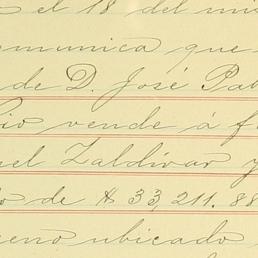 s el 18 del mis
omunica que
de D. José Pab
io vende á f
uel Zaldívar y
o de $ 33,211.88
reno ubicado